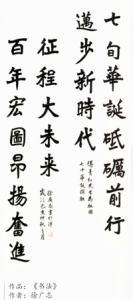 七旬華誕砥礪前行
邁步新時代
征程大未來
百年宏圖昂揚奮進
作品：《书法》
作者：徐广志